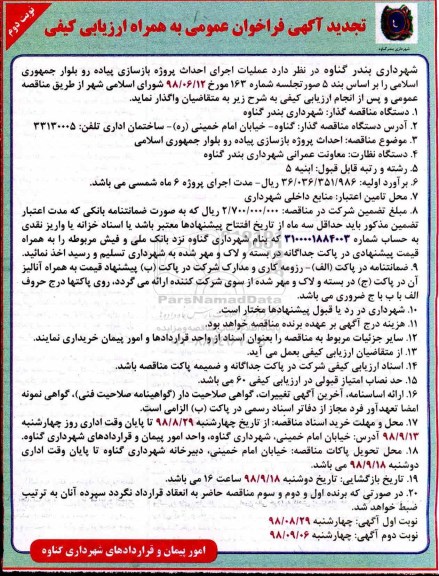 نوبت دوم
تجدید آگهی فراخوان عمومی به همراه ارزیابی کیفی
شهرداری بندر گناوه
شهرداری بندر گناوه در نظر دارد عملیات اجرای احداث پروژه بازسازی پیاده رو بلوار جمهوری
اسلامی را بر اساس بند ۵ صورتجلسه شماره ۱۶۳ مورخ ۹۸/۰۶/۱۲ شورای اسلامی شهر از طریق مناقصه
عمومی و پس از انجام ارزیابی کیفی به شرح زیر به متقاضیان واگذار نماید.
۱. دستگاه مناقصه گذار: شهرداری بندر گناوه
۲. آدرس دستگاه مناقصه گذار: گناوه- خیابان امام خمینی (ره)- ساختمان اداری تلفن: ۳۳۱۳۰۰۰۵
۳. موضوع مناقصه: احداث پروژه بازسازی پیاده رو بلوار جمهوری اسلامی
۴. دستگاه نظارت: معاونت عمرانی شهرداری بندر گناوه
۵. رشته و رتبه قابل قبول: ابنیه ۵
۶. برآورد اولیه: ۳۶/۰۳۶/۳۵۱/۹۸۶ ریال- مدت اجرای پروژه ۶ ماه شمسی می باشد.
۷. محل تامین اعتبار: منابع داخلی شهرداری
۸. مبلغ تضمین شرکت در مناقصه: ۲/۷۰۰/۰۰۰/۰۰۰ ریال که به صورت ضمانتنامه بانکی که مدت اعتبار
تضمین مذکور باید حداقل سه ماه از تاریخ افتتاح پیشنهادها معتبر باشد یا اسناد خزانه یا واریز نقدی
به حساب شماره ۳۱۰۰۰۰۱۸۸۴۰۰۳ که بنام شهرداری گناوه نزد بانک ملی و فیش مربوطه را به همراه
قیمت پیشنهادی در پاکت جداگانه در بسته و لاک و مهر شده به شهرداری تسلیم و رسید اخذ نمائید.
۹. ضمانتنامه در پاکت (الف)- رزومه کاری و مدارک شرکت در پاکت (ب) پیشنهاد قیمت به همراه آنالیز
آن در پاکت (ج) در بسته و لاک و مهر شده از سوی شرکت کننده ارائه می گردد، روی پاکتها درج حروف
الف با ب با ج ضروری می باشد.
۱۰. شهرداری در رد یا قبول پیشنهادها مختار است.
۱۱. هزینه درج آگهی بر عهده برنده مناقصه خواهد بود.
۱۲. سایر جزئیات مربوط به مناقصه را بعنوان اسناد از واحد قراردادها و امور پیمان خریداری نمایند.
۱۳. از متقاضیان ارزیابی کیفی بعمل می آید.
۱۴. اسناد ارزیابی کیفی شرکت در پاکت جداگانه و ضمیمه پاکت مناقصه باشد.
۱۵. حد نصاب امتیاز قبولی در ارزیابی کیفی ۶۰ می باشد.
۱۶. ارائه اساسنامه، آخرین آگهی تغییرات، گواهی صلاحیت دار (گواهینامه صلاحیت فنی)، گواهی نمونه
امضا تعهدآور فرد مجاز از دفاتر اسناد رسمی در پاکت (ب) الزامی است.
۱۷. محل و مهلت خرید اسناد مناقصه: از تاریخ چهارشنبه ۹۸/۸/۲۹ تا پایان وقت اداری روز چهارشنبه
۹۸/۹/۱۳ آدرس: خیابان امام خمینی، شهرداری گناوه، واحد امور پیمان و قراردادهای شهرداری گناوه.
۱۸. محل تحویل پاکات مناقصه: خیابان امام خمینی، دبیرخانه شهرداری گناوه تا پایان وقت اداری
دوشنبه ۹۸/۹/۱۸ می باشد.
۱۹. تاریخ بازگشایی: تاریخ دوشنبه ۹۸/۹/۱۸ ساعت ۱۶ می باشد.
۲۰. در صورتی که برنده اول و دوم و سوم مناقصه حاضر به انعقاد قرارداد نگردد سپرده آنان به ترتیب
ضبط خواهد شد.
نوبت اول آگهی: چهارشنبه ۹۸/۰۸/۲۹
نوبت دوم آگهی: چهارشنبه ۹۸/۰۹/۰۶
امور پیمان و قراردادهای شهرداری گناوه
ParsNamadData